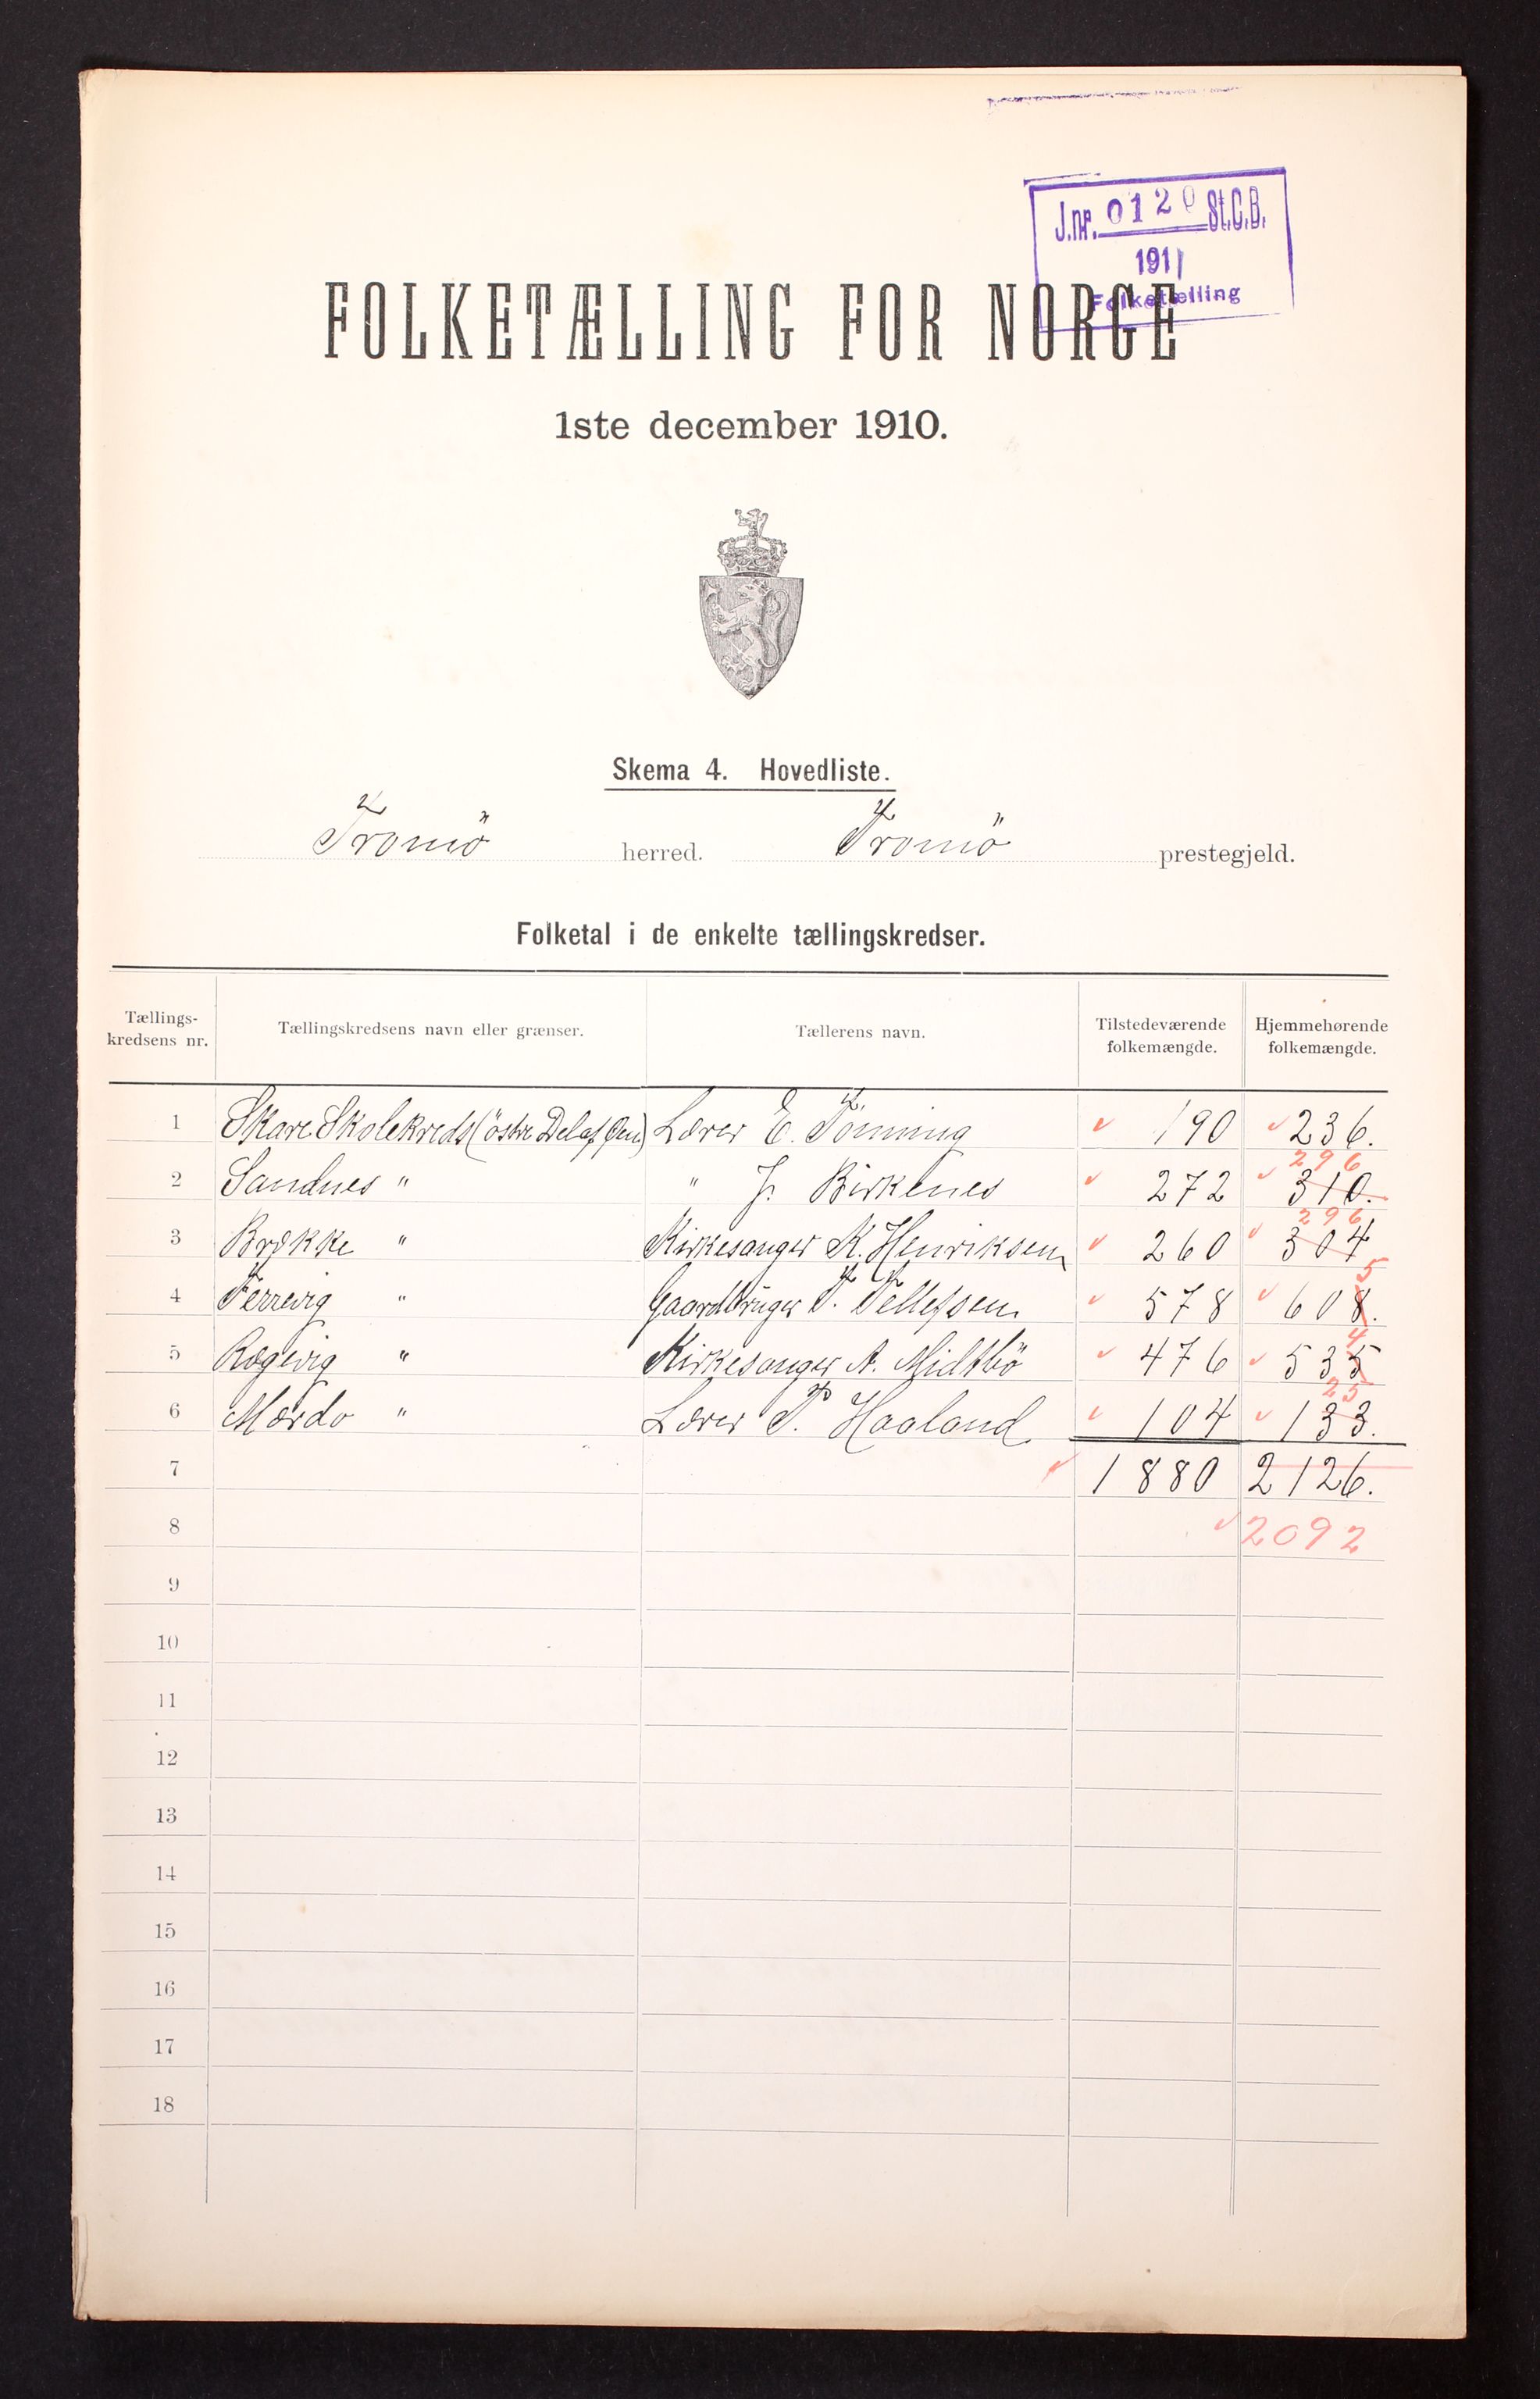 J.nr. 0120 St.C.B.
1911
Folketælling
FOLKETÆLLING FOR NORGE
1ste december 1910.
Skema 4. Hovedliste.
Tromö herred. Tromö prestegjeld.
Folketal i de enkelte tællingskredser.
Tællings-kredsens nr. Tællingskredsens navn eller grænser. Tællerens navn. Tilstedeværende folkemængde. Hjemmehørende folkemængde.
1 Skare Skolekreds (östre Del af Öen) Lærer E. Tönning 190 236.
296
2 Sandnes " " J. Birkenes 272 310.
296
3 Brække " Kirkesanger K. Henriksen 260 304
5
4 Færevig " Gaardbruger T. Tellefsen 578 608.
4
5 Rægevig " Kirkesanger A. Midtbö 476 535
25
6 Mærdo " Lærer T. Haaland 104 133.
7 1880 2126.
8 2092
9
10
11
12
13
14
15
16
17
18